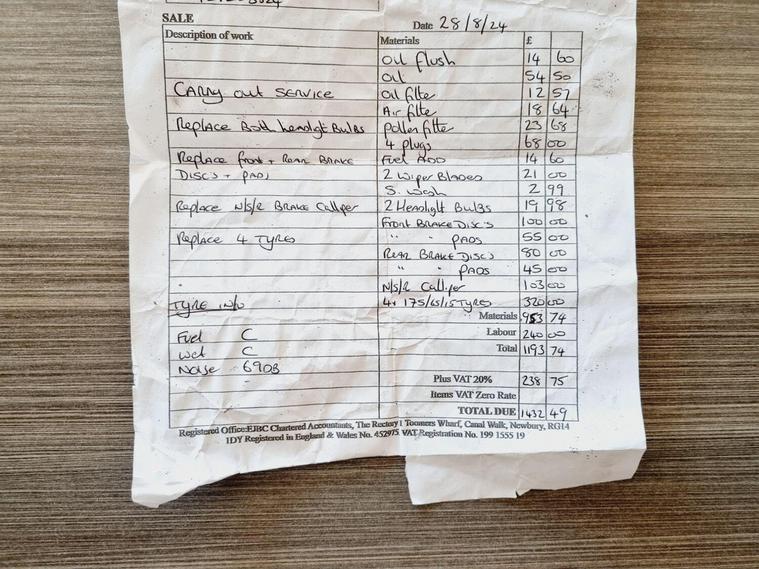 SALE
Date 28/8/24
Description of work Materials £
Oil flush 14 60
Oil 54 50
CARRY out SERVICE Oil filter 12 57
Air filter 18 64
Replace Both headligt Bulbs pollen filter 23 68
4 plugs 68 00
Replace front + REAR BRAKE Fuel ADD 14 60
DISCS + PADS 2 Wiper BLADES 21 00
S. wash 2 99
Replace N/S/R BRAKE Calliper 2 Headlight Bulbs 19 98
Front BRAKE DISCS 100 00
Replace 4 TYRES " " PADS 55 00
REAR BRAKE DISCS 80 00
" " PADS 45 00
N/S/R Calliper 103 00
TYRE INFO 4x 175/65/15 TYRES 320 00
Materials 953 74
Fuel C Labour 240 00
Wet C Total 1193 74
Noise 69DB
Plus VAT 20% 238 75
Items VAT Zero Rate
TOTAL DUE 1432 49
Registered Office:EJBC Chartered Accountants, The Rectory 1 Toomers Wharf, Canal Walk, Newbury, RG14
1DY Registered in England & Wales No. 452975 VAT Registration No. 199 1555 19